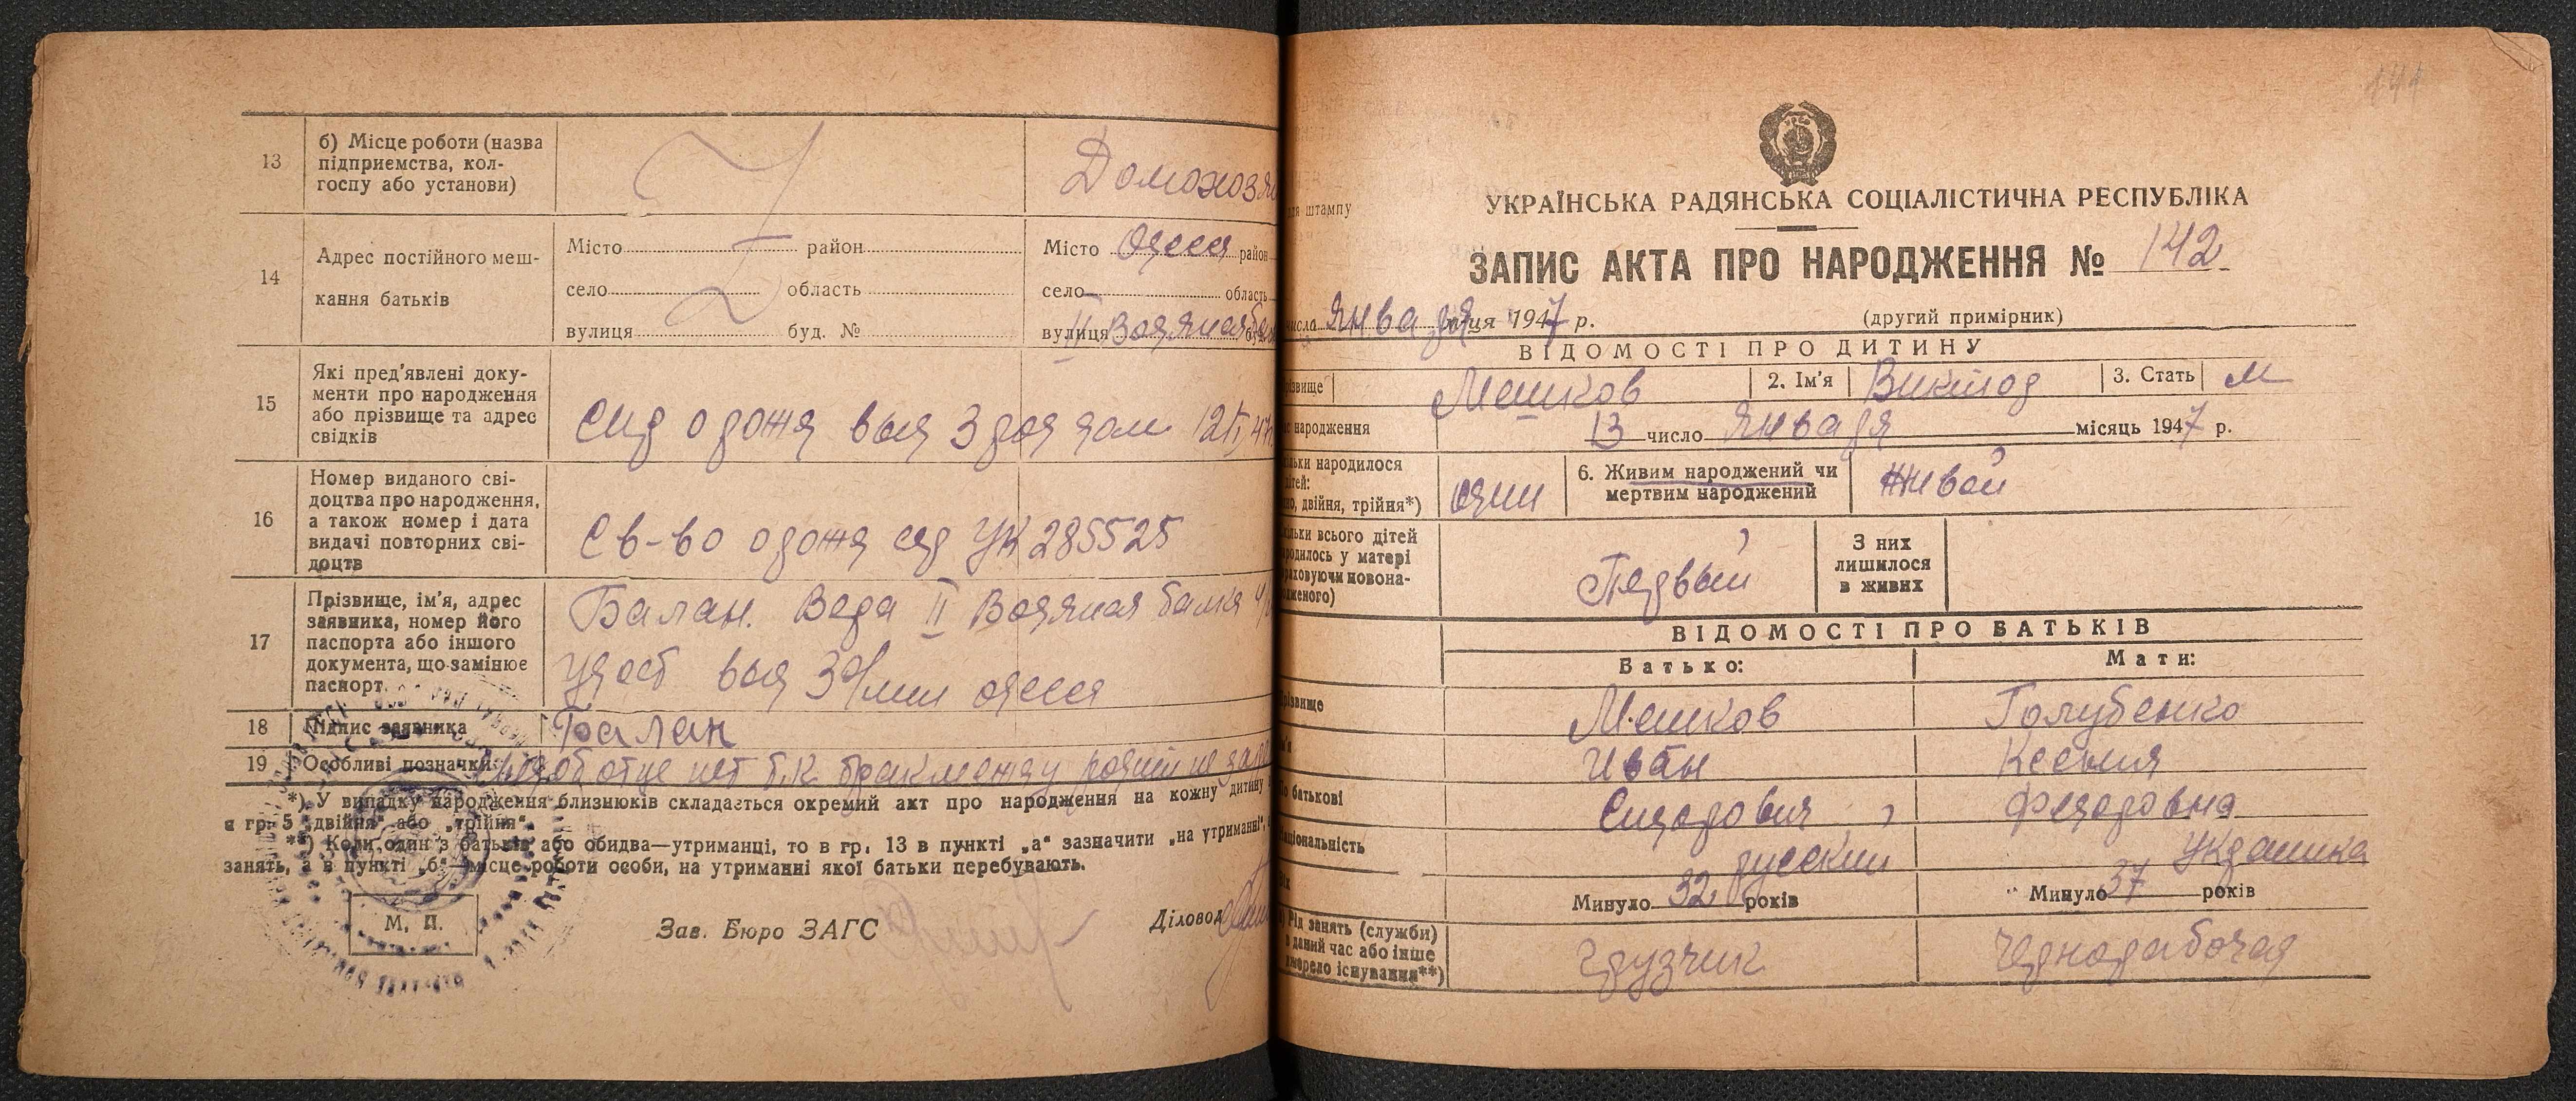 13
б) Місце роботи (назва
підприємства, кол-
госпу або установи)
Домохозяй
14
Адрес постійного меш-
кання батьків
Місто район
село область
вулиця буд. №
Місто Одесса район
село область
вулиця II Водяная бал
15
Які пред'явлені доку-
менти про народження
або прізвище та адрес
свідків
о рожд выд 3 род дом 12/I 47
16
Номер виданого сві-
доцтва про народження,
а також номер і дата
видачі повторних сві-
доцтв
Св-во о рожд сер УК 285525
17
Прізвище, ім'я, адрес
заявника, номер його
паспорта або іншого
документа, що замінює
паспорт
Балан. Вера II Водяная балка
удост выд 3 о/мил Одесса
18
Підпис заявника
Балан
19
Особливі позначки
об отце нет т.к. брак между родит не
*) У випадку народження близнюків складається окремий акт про народження на кожну дитину
гр. 5 „двійня" або „трійня".
**) Коли один з батьків або обидва—утриманці, то в гр. 13 в пункті „а" зазначити „на утриманні",
занять, а в пункті „б"—місце роботи особи, на утриманні якої батьки перебувають.
М. П.
Зав. Бюро ЗАГС
Діловод
141
УКРАЇНСЬКА РАДЯНСЬКА СОЦІАЛІСТИЧНА РЕСПУБЛІКА
штампу
ЗАПИС АКТА ПРО НАРОДЖЕННЯ № 142
числа января місяця 1947 р.
(другий примірник)
ВІДОМОСТІ ПРО ДИТИНУ
різвище
Мешков
2. Ім'я
Виктор
3. Стать
м
народження
13 число января місяць 1947 р.
ьки народилося
ітей:
но, двійня, трійня*)
один
6. Живим народжений чи
мертвим народжений
Живой
ільки всього дітей
родилось у матері
раховуючи новона-
дженого)
Первый
З них
лишилося
в живих
ВІДОМОСТІ ПРО БАТЬКІВ
Батько:
Мати:
різвище
Мешков
Голубенко
Иван
Ксения
о батькові
Сидорович
Федоровна
аціональність
русский
Украинка
Вік
Минуло 32 років
Минуло 37 років
Рід занять (служби)
в даний час або інше
джерело існування**)
Грузчик
Чернорабочая